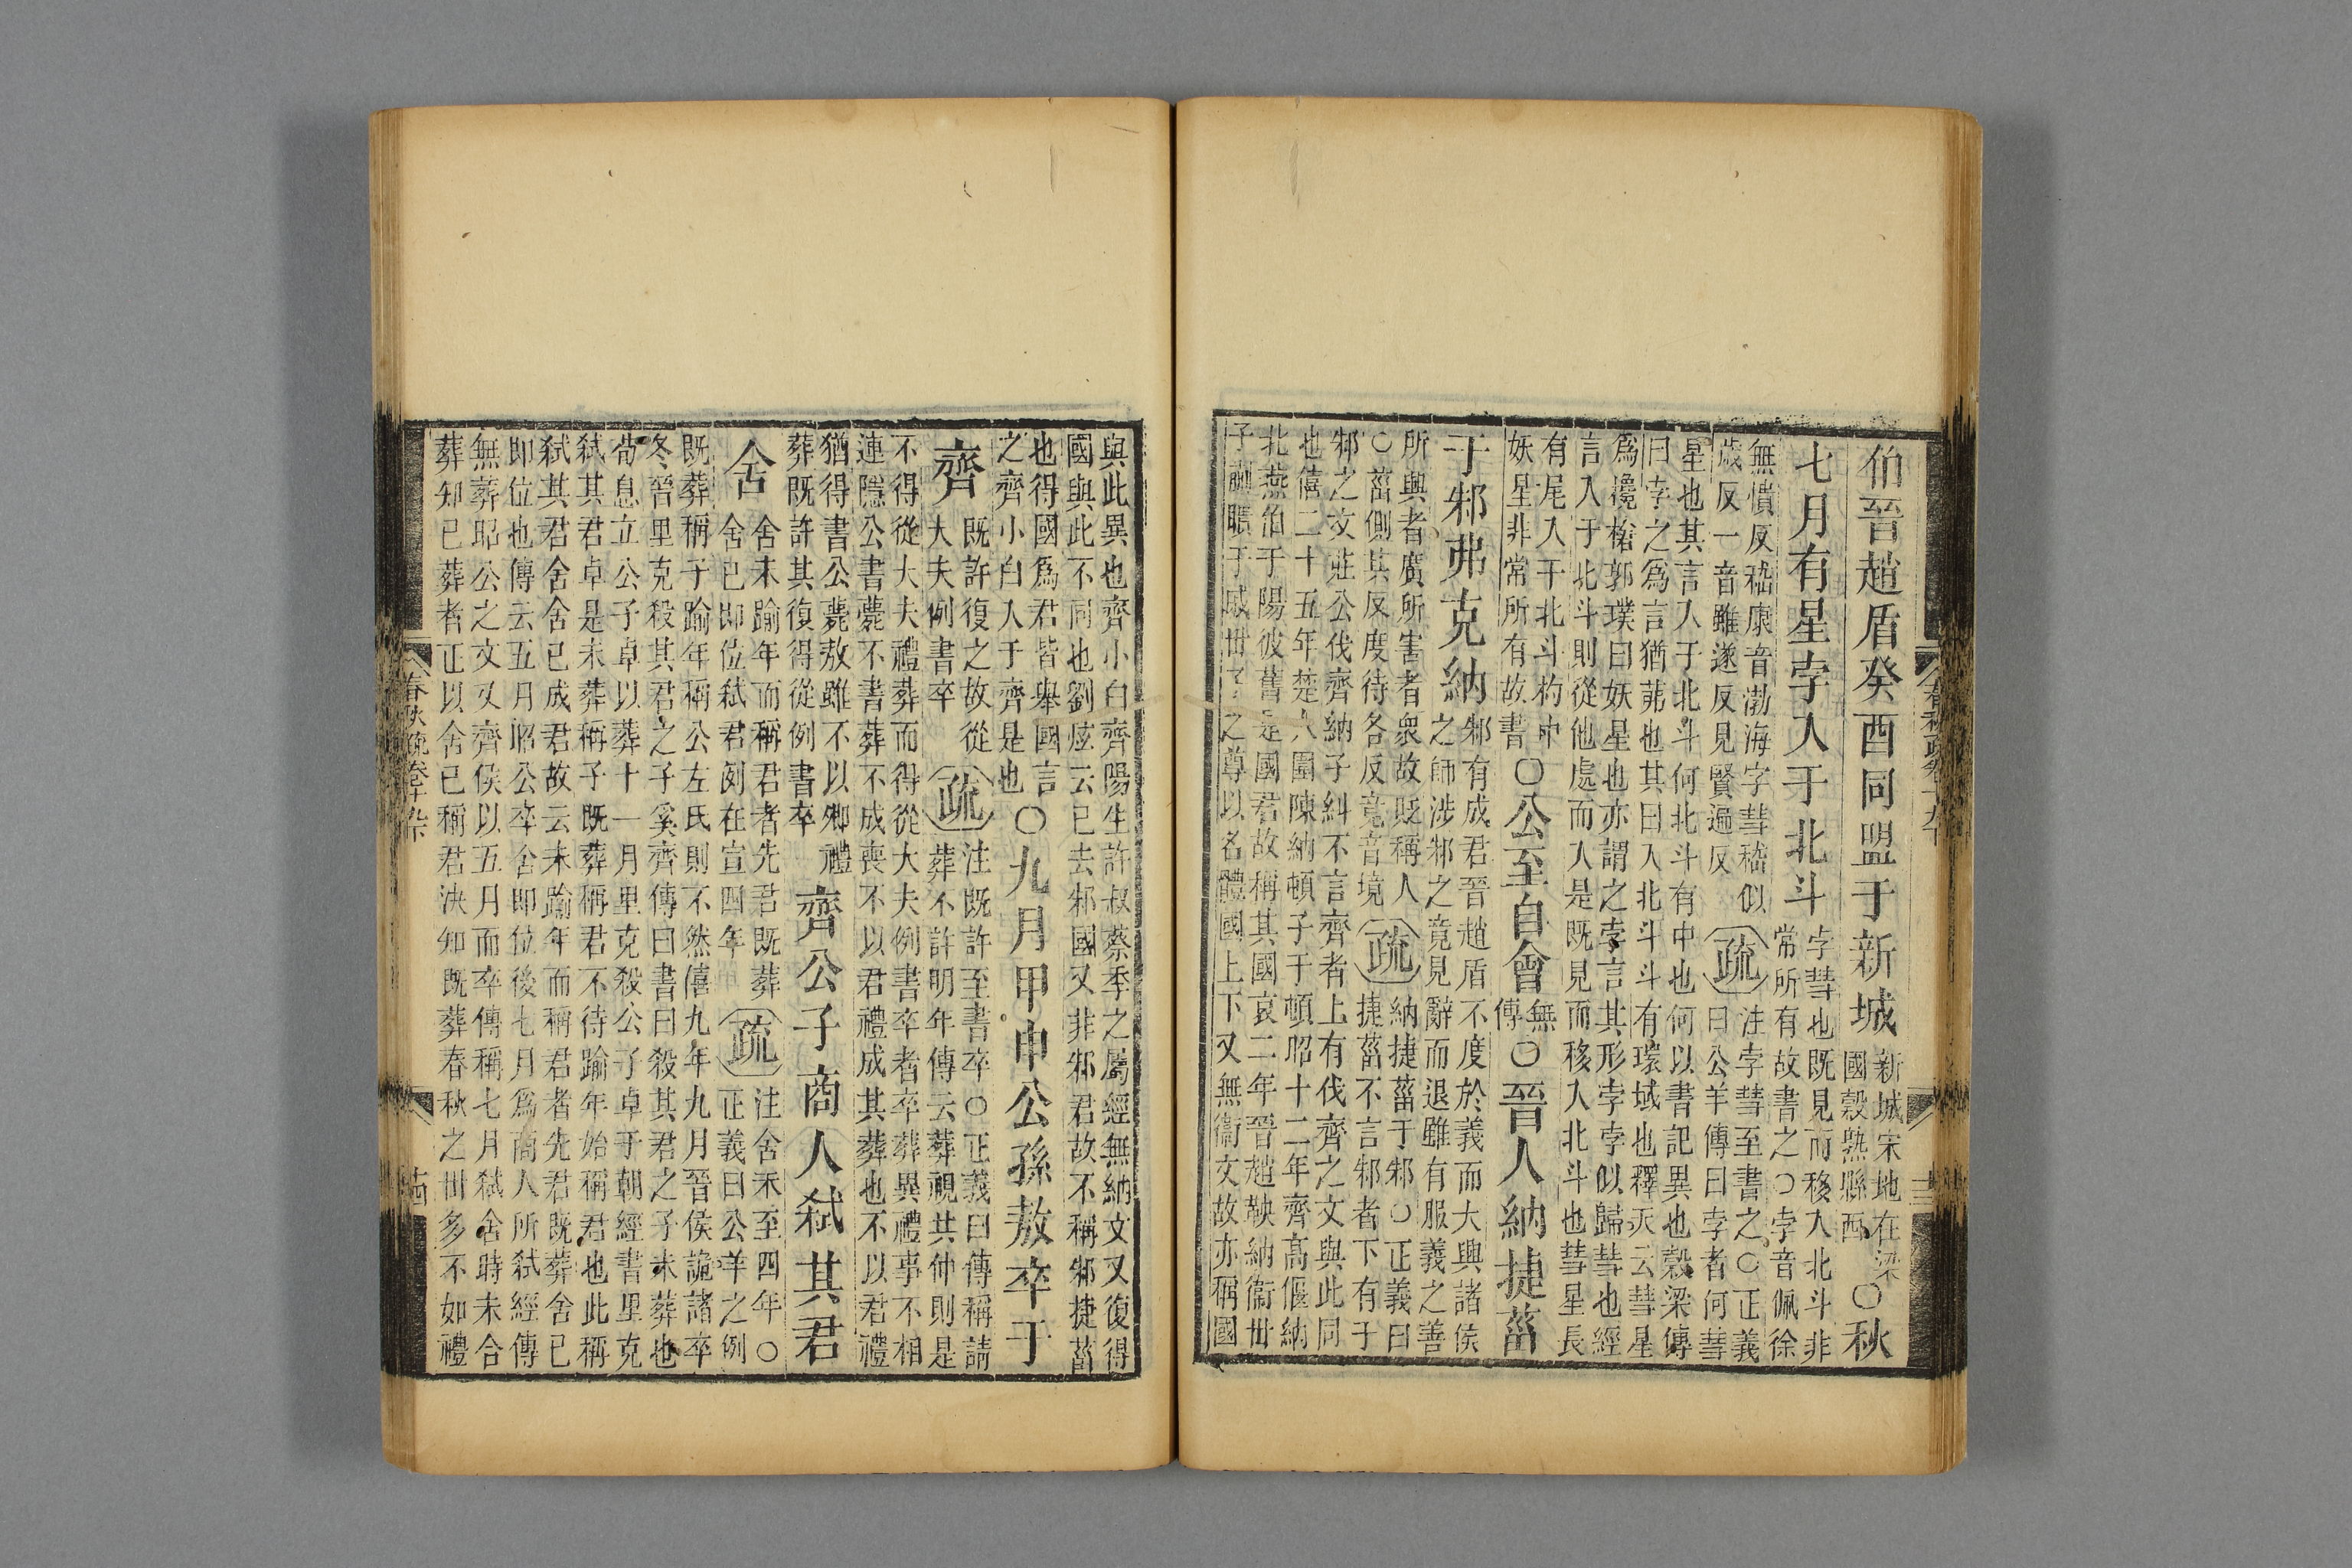 春秋疏卷十九下
伯晉趙盾癸酉同盟于新城
新城宋地在梁
國穀熟縣西
○秋
七月有星孛入于北斗
孛彗也既見而移入北斗非
常所有故書之○孛音佩徐
無憒反嵇康音渤海字彗嵇似
歲反一音雖遂反見賢遍反
疏
注孛彗至書之○正義
曰公羊傳曰孛者何彗
星也其言入于北斗何北斗有中也何以書記異也穀梁傳
曰孛之爲言猶茀也其曰入北斗斗有環域也釋天云彗星
爲欃槍郭璞曰妖星也亦謂之孛言其形孛孛似歸彗也經
言入于北斗則從他處而入是既見而移入北斗也彗星長
有尾入于北斗杓中
妖星非常所有故書
○公至自會
無
傳
○晉人納捷菑
于邾弗克納
邾有成君晉趙盾不度於義而大興諸侯
之師涉邾之竟見辭而退雖有服義之善
所興者廣所害者衆故貶稱人
○菑側其反度待各反竟音境
疏
納捷菑于邾○正義曰
捷菑不言邾者下有于
邾之文莊公伐齊納子糾不言齊者上有伐齊之文與此同
也僖二十五年楚人圍陳納頓子于頓昭十二年齊高偃納
北燕伯于陽彼舊是國君故稱其國哀二年晉趙鞅納衞世
子蒯聵于戚世子之尊以名體國上下又無衞文故亦稱國
與此異也齊小白齊陽生許叔蔡季之屬經無納文又復得
國與此不同也劉炫云已去邾國又非邾君故不稱邾捷菑
也得國爲君皆舉國言
之齊小白入于齊是也
○九月甲申公孫敖卒于
齊
既許復之故從
大夫例書卒
疏
注既許至書卒○正義曰傳稱請
葬不許明年傳云葬視共仲則是
不得從大夫禮葬而得從大夫例書卒者卒葬異禮事不相
連隱公書薨不書葬不成喪不以君禮成其葬也不以君禮
猶得書公薨敖雖不以卿禮
葬既許其復得從例書卒
齊公子商人弒其君
舍
舍未踰年而稱君者先君既葬
舍已即位弒君例在宣四年
疏
注舍未至四年○
正義曰公羊之例
既葬稱子踰年稱公左氏則不然僖九年九月晉侯詭諸卒
冬晉里克殺其君之子奚齊傳曰書曰殺其君之子未葬也
荀息立公子卓以葬十一月里克殺公子卓于朝經書里克
弒其君卓是未葬稱子既葬稱君不待踰年始稱君也此稱
弒其君舍舍已成君故云未踰年而稱君者先君既葬舍已
即位也傳云五月昭公卒舍即位後七月爲商人所弒經傳
無葬昭公之文又齊侯以五月而卒傳稱七月弒舍時未合
葬知已葬者正以舍已稱君決知既葬春秋之世多不如禮